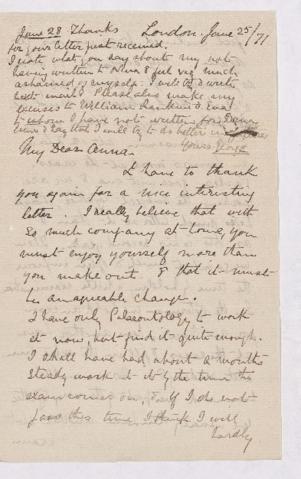 June 28 Thanks London June 25/71
for your letter just received.
I note what you say about my not
having written to & feel very much
ashamed of myself. I will try & write
next week. Please also make my
excuses to William Rankine &
to whom I have not written for
time & say that I will try to do better in
Yours
My Dear Anna.
I have to thank
you again for a nice interesting
letter. I really believe that with
so much company at home, you
must enjoy yourself more than
you make out & that it must
be an agreeable change.
I have only Palaeontology to work
at now, but find it quite enough.
I shall have had about a months
steady work at it by the time the
exam comes on, & if I do not
pass this time, I think I will
hardly